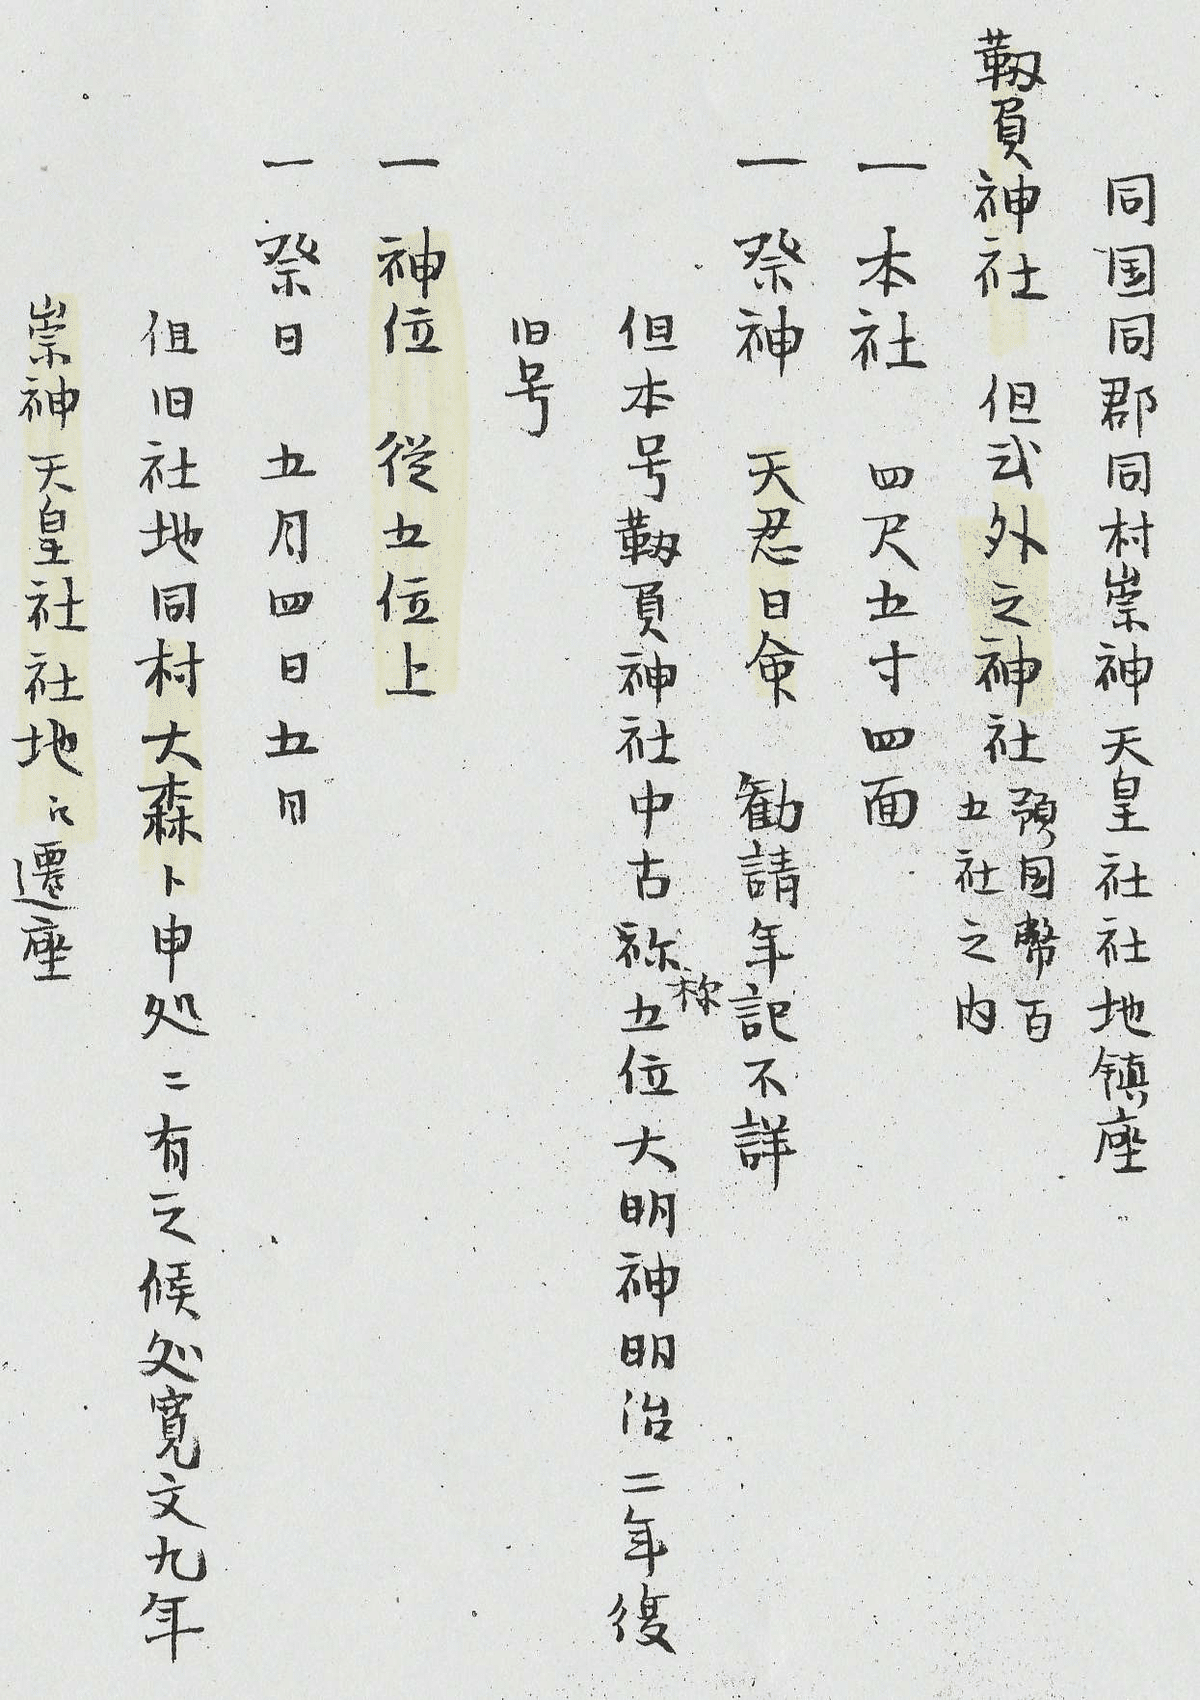 同国同郡同村崇神天皇社社地鎮座
靱負神社 但式外之神社 預国幣百
五社之内
一 本社 四尺五寸四面
一 祭神 天忍日命 勧請年記不詳
但本号靱負神社中古称五位大明神明治二年復
称
旧号
一 神位 従五位上
一 祭日 五月四日五日
但旧社地同村大森ト申処ニ有之候処寛文九年
崇神天皇社社地に遷座